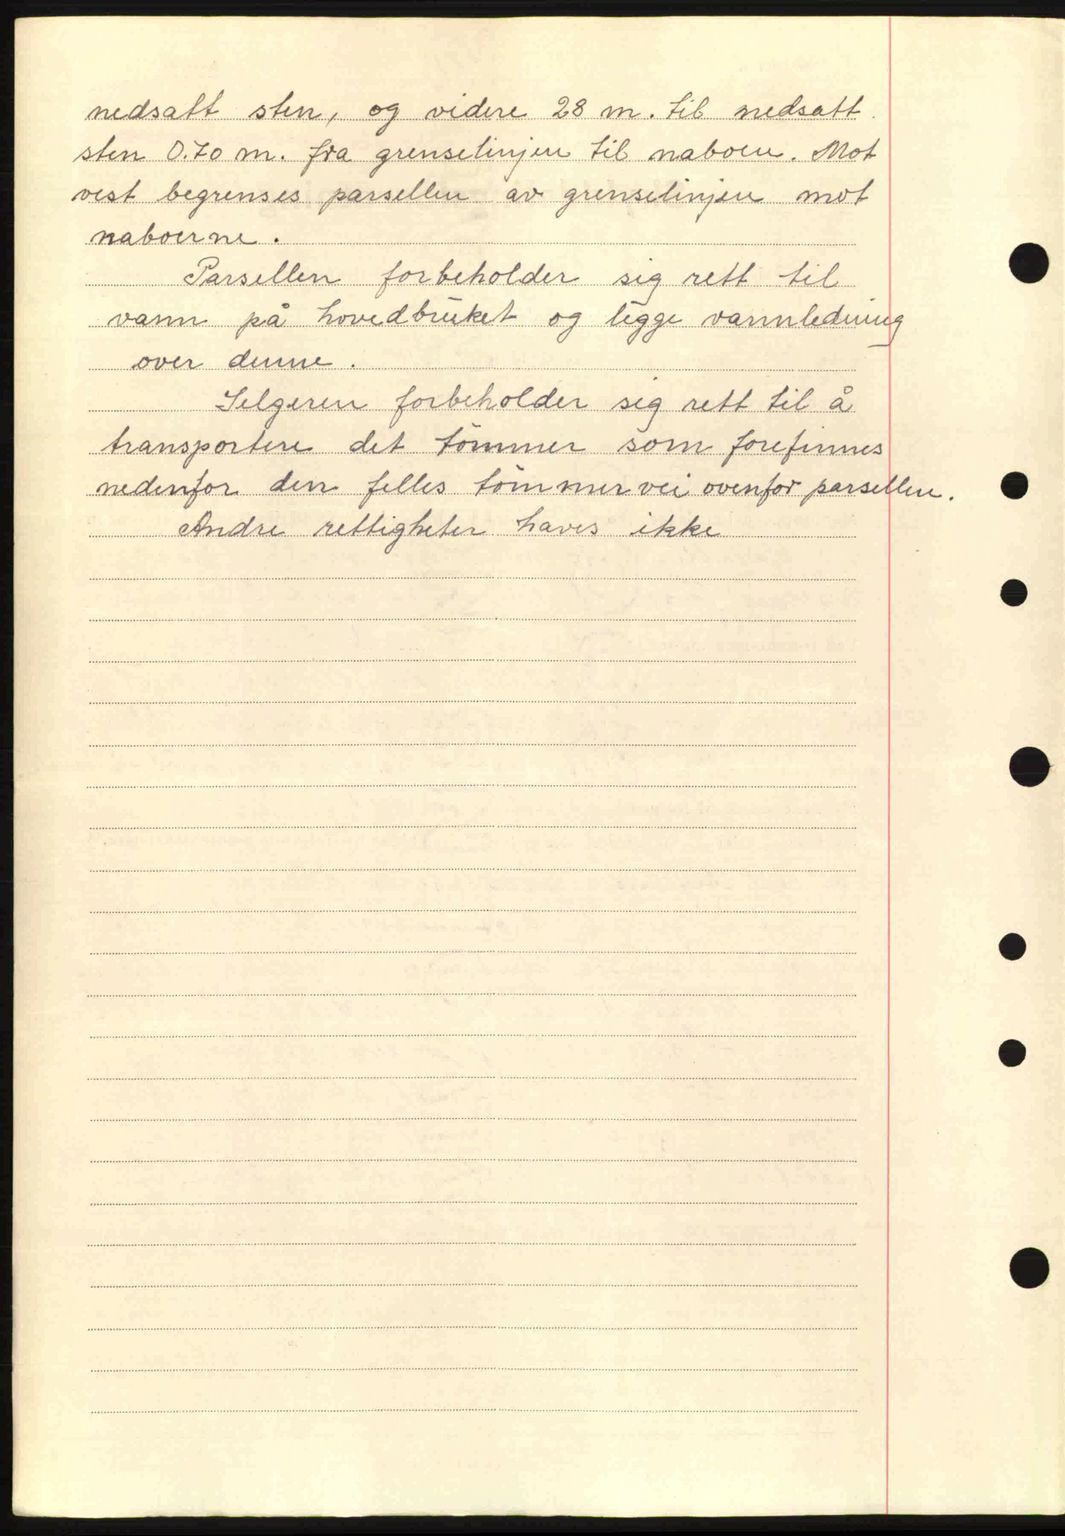 nedsatt sten, og videre 28 m. til nedsatt
sten 0.70 m. fra grenselinjen til naboen. Mot
vest begrenses parsellen av grenselinjen mot
naboerne.
Parsellen forbeholder sig rett til
vann på hovedbruket og legge vannledning
over denne.
Selgeren forbeholder sig rett til å
transportere det tømmer som forefinnes
nedenfor den felles tømmervei ovenfor parsellen.
Andre rettigheter haves ikke